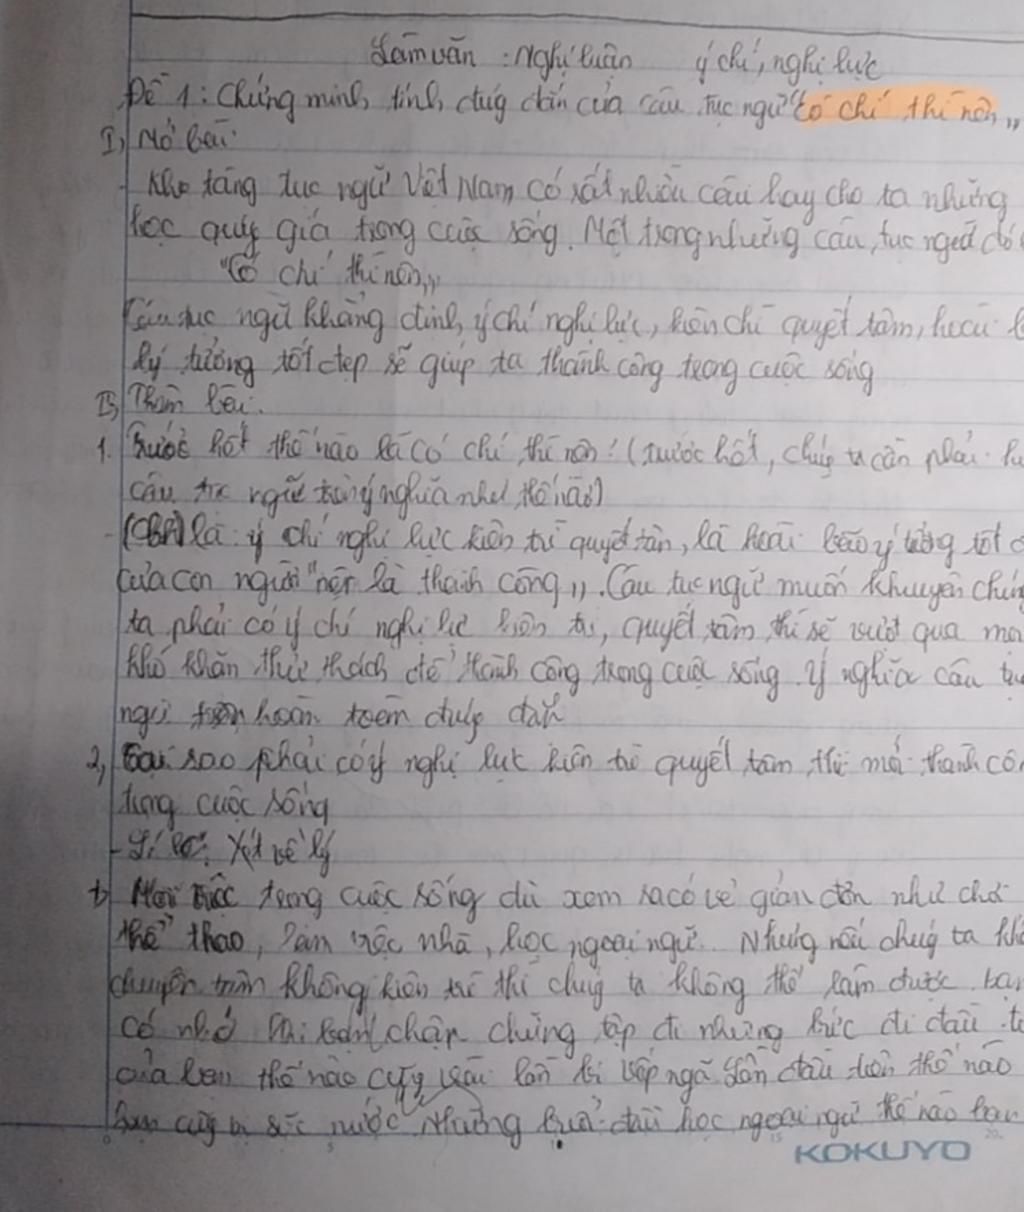 Làm văn : Nghị luận ý chí, nghị lực
Đề 1 : Chứng minh tính đúng đắn của câu tục ngữ "có chí thì nên"
I, Mở bài
- Kho tàng tục ngữ Việt Nam có rất nhiều câu hay cho ta những
học quý giá trong cuộc sống. Một trong những câu tục ngữ đó
"Có chí thì nên"
Câu tục ngữ khẳng định ý chí nghị lực, kiên chì quyết tâm, hoài
lý tưởng tốt đẹp sẽ giúp ta thành công trong cuộc sống
II, Thân bài.
1. Trước hết thế nào là có chí thì nên! (trước hết, chúng ta cần phải
câu tục ngữ ý nghĩa như thế nào)
là ý chí nghị lực kiên trì quyết tân, là hoài bão lý tưởng tốt
của con người "nên là thành công". Câu tục ngữ muốn khuyên chúng
ta phải có ý chí nghị lực kiên trì, quyết tâm thì sẽ vượt qua mọi
khó khăn thử thách để thành công trong cuộc sống. Ý nghĩa câu tục
ngữ hoàn toàn đúng đắn
2, Tại sao phải có ý nghị lực kiên trì quyết tâm thì mới thành côn
trong cuộc sống
- Xét về lý
+ Mọi việc trong cuộc sống dù xem ra có vẻ giản đơn như chơi
thể thao, làm việc nhà, học ngoại ngữ.. Nhưng nếu chúng ta khô
không kiên trì thì chúng ta không thể làm được. bạn
có nhớ chập chững tập đi những bước đi đầu
của bạn thế nào cũng bị vấp ngã lần đầu tiên thế nào
bạn cũng bị sặc nước những buổi đầu học ngoại ngữ thế nào bạn
KOKUYO